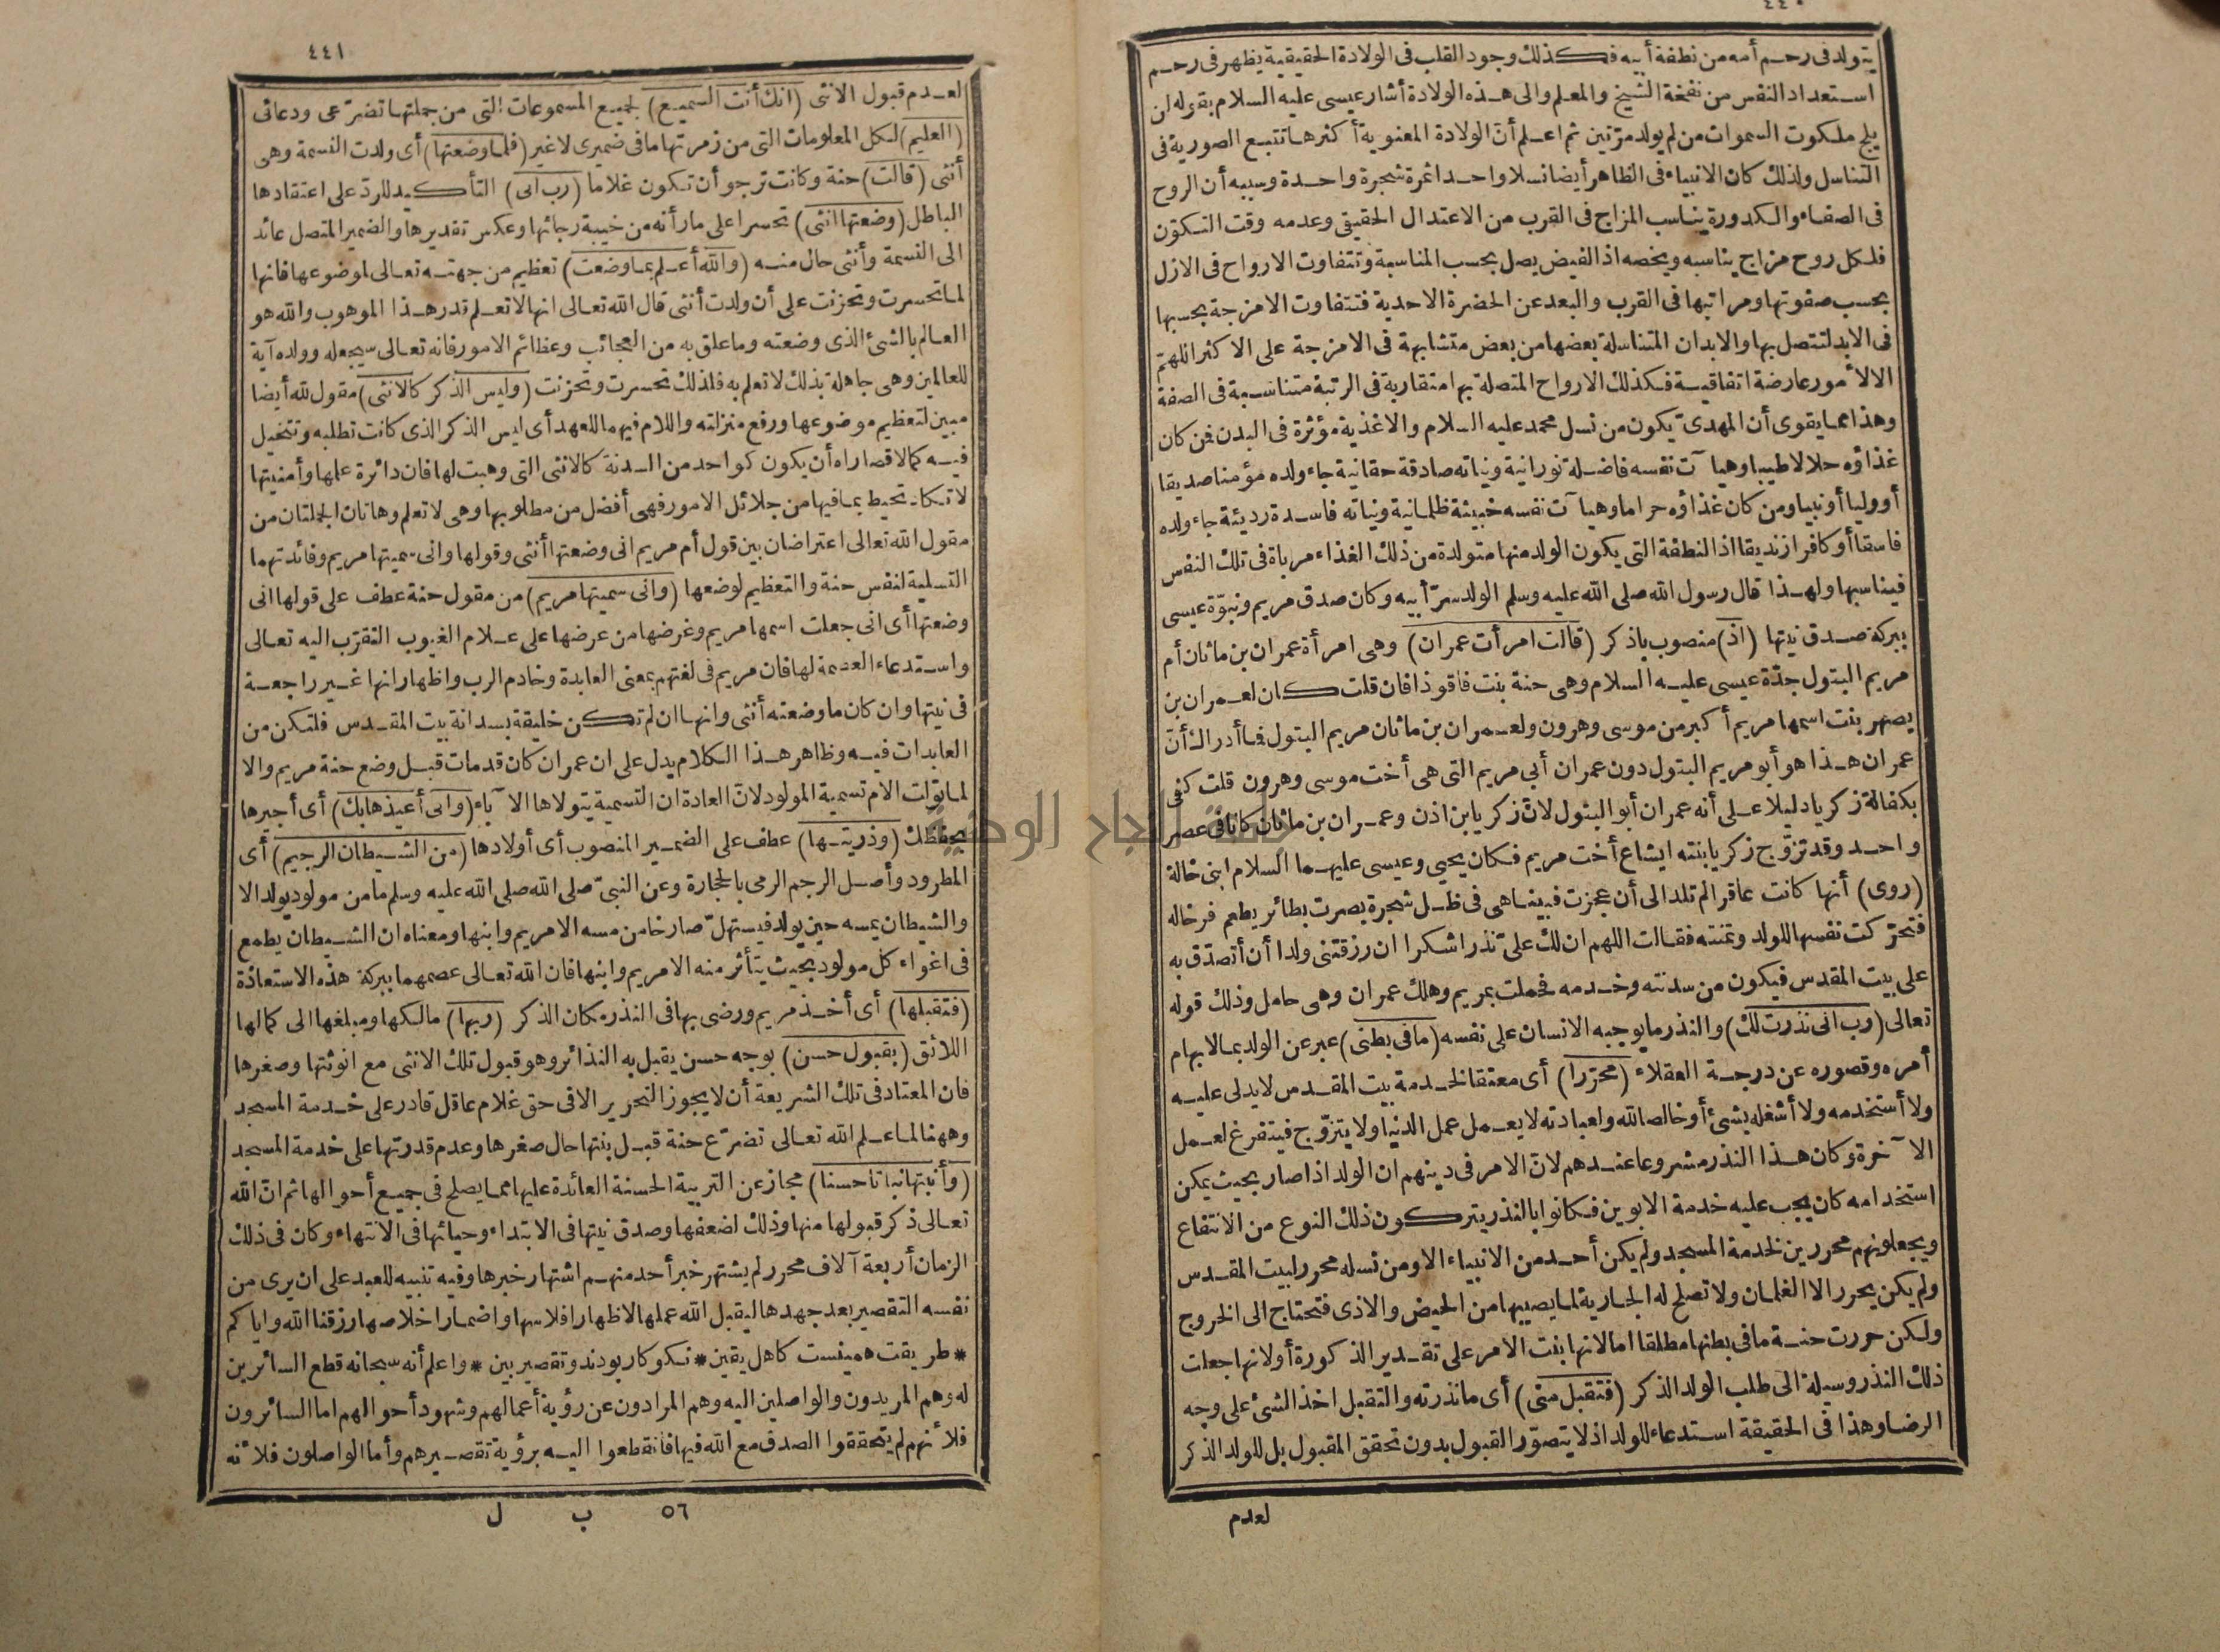 ٤٤٠
يتولد فى رحم أمه من نطفة أبيه فكذلك وجود القلب فى الولادة الحقيقية يظهر فى رحم
استعداد النفس من نفخة الشيخ والمعلم والى هذه الولادة أشار عيسى عليه السلام بقوله لن
يلج ملكوت السموات من لم يولد مرّتين ثم اعلم أنّ الولادة المعنوية أكثرها تتبع الصورية فى
التناسل ولذلك كان الانبياء فى الظاهر أيضا نسلا واحدا ثمرة شجرة واحدة وسببه أن الروح
فى الصفاء والكدورة يناسب المزاج فى القرب من الاعتدال الحقيقى وعدمه وقت التكوّن
فلكل روح مزاج يناسبه ويخصه اذ الفيض يصل بحسب المناسبة وتتفاوت الارواح فى الازل
بحسب صفوتها ومراتبها فى القرب والبعد عن الحضرة الاحدية فتتفاوت الامزجة بحسبها
فى الابد لتتصل بها والابدان المتناسلة بعضها من بعض متشابهة فى الامزجة على الاكثر اللهمّ
الا لأمور عارضة اتفاقية فكذلك الارواح المتصلة بها متقاربة فى الرتبة متناسبة فى الصفة
وهذا مما يقوى أن المهدىّ يكون من نسل محمد عليه السلام والاغذية مؤثرة فى البدن فمن كان
غذاؤه حلالا طيبا وهيآت نفسه فاضلة نورانية ونياته صادقة حقانية جاء ولده مؤمنا صديقا
أو وليا أو نبيا ومن كان غذاؤه حراما وهيآت نفسه خبيثة ظلمانية ونياته فاسدة رديئة جاء ولده
فاسقا أو كافرا زنديقا اذ النطفة التى يكون الولد منها متولدة من ذلك الغذاء مرباة فى تلك النفس
فيناسبها ولهذا قال رسول الله صلى الله عليه وسلم الولد سرّ أبيه وكان صدق مريم ونبوّة عيسى
ببركة صدق نيتها (اذ) منصوب باذكر (قالت امرأت عمران) وهى امرأة عمران بن ماثان أم
مريم البتول جدّة عيسى عليه السلام وهى حنة بنت فاقوذا فان قلت كان لعمران بن
يصهر بنت اسمها مريم أكبر من موسى وهرون ولعمران بن ماثان مريم البتول فما أدراك أنّ
عمران هذا هو أبو مريم البتول دون عمران أبى مريم التى هى أخت موسى وهرون قلت كفى
بكفالة زكريا دليلا على أنه عمران أبو البتول لانّ زكريا بن اذن وعمران بن ماثان كانا فى عصر
واحد وقد تزوّج زكريا بنته ايشاع أخت مريم فكان يحيى وعيسى عليهما السلام ابنى خالة
(روى) أنها كانت عاقرا لم تلد الى أن عجزت فبينما هى فى ظل شجرة بصرت بطائر يطعم فرخاله
فتحرّكت نفسها للولد وتمنته فقالت اللهم ان لك علىّ نذرا شكرا ان رزقتنى ولدا أن أتصدّق به
على بيت المقدس فيكون من سدنته وخدمه فحملت بمريم وهلك عمران وهى حامل وذلك قوله
تعالى (رب انى نذرت لك) والنذر ما يوجبه الانسان على نفسه (ما فى بطنى) عبر عن الولد بما لابهام
أمره وقصوره عن درجة العقلاء (محرّرا) أى معتقا لخدمة بيت المقدس لا يدلى عليه
ولا أستخدمه ولا أشغله بشئ أو خالصا لله ولعبادته لا يعمل عمل الدنيا ولا يتزوّج فيتفرغ لعمل
الآخرة وكان هذا النذر مشروعا عندهم لانّ الامر فى دينهم ان الولد اذا صار بحيث يمكن
استخدامه كان يجب عليه خدمة الابوين فكانوا بالنذر يتركون ذلك النوع من الانتفاع
ويجعلونهم محررين لخدمة المسجد ولم يكن أحد من الانبياء الا ومن نسله محرر لبيت المقدس
ولم يكن يحرر الا الغلمان ولا تصلح له الجارية لما يصيبها من الحيض والاذى فتحتاج الى الخروج
ولكن حررت حنة ما فى بطنها مطلقا اما لانها بنت الامر على تقدير الذكورة أو لانها جعلت
ذلك النذر وسيلة الى طلب الولد الذكر (فتقبل منى) أى ما نذرته والتقبل اخذ الشئ على وجه
الرضا وهذا فى الحقيقة استدعاء للولد اذ لا يتصوّر القبول بدون تحقق المقبول بل للولد الذكر
لعدم
٤٤١
لعدم قبول الانثى (انك أنت السميع) لجميع المسموعات التى من جملتها تضرّعى ودعائى
(العليم) لكل المعلومات التى من زمرتها ما فى ضميرى لا غير (فلما وضعتها) أى ولدت النسمة وهى
أنثى (قالت) حنة وكانت ترجو أن تكون غلاما (رب انى) التأكيد للردّ على اعتقادها
الباطل (وضعتها انثى) تحسرا على ما رأته من خيبة رجائها وعكس تقديرها والضمير المتصل عائد
الى النسمة وأنثى حال منه (والله أعلم بما وضعت) تعظيم من جهته تعالى لموضوعها فانها
لما تحسرت وتحزنت على أن ولدت أنثى قال الله تعالى انها لا تعلم قدر هذا الموهوب والله هو
العالم بالشئ الذى وضعته وما علق به من العجائب وعظائم الامور فانه تعالى سيجعله وولده آية
للعالمين وهى جاهلة بذلك لا تعلم به فلذلك تحسرت وتحزنت (وليس الذكر كالانثى) مقول لله أيضا
مبين لتعظيم موضوعها ورفع منزلته واللام فيهما للعهد أى ليس الذكر الذى كانت تطلبه وتتخيل
فيه كمالا قصاراه أن يكون كواحد من السدنة كالانثى التى وهبت لها فان دائرة علمها وأمنيتها
لا تكاد تحيط بما فيها من جلائل الامور فهى أفضل من مطلوبها وهى لا تعلم وهاتان الجملتان من
مقول الله تعالى اعتراضان بين قول أم مريم انى وضعتها أنثى وقولها وانى سميتها مريم وفائدتهما
التسلية لنفس حنة والتعظيم لوضعها (وانى سميتها مريم) من مقول حنة عطف على قولها انى
وضعتها أى انى جعلت اسمها مريم وغرضها من عرضها على علام الغيوب التقرّب اليه تعالى
واستدعاء العصمة لها فان مريم فى لغتهم بمعنى العابدة وخادم الرب واظهار انها غير راجعة
فى نيتها وان كان ما وضعته أنثى وانها ان لم تكن خليقة بسدانة بيت المقدس فلتكن من
العابدات فيه وظاهر هذا الكلام يدل على ان عمران كان قد مات قبل وضع حنة مريم والا
لما تولت الام تسمية المولود لانّ العادة ان التسمية يتولاها الآباء (وانى أعيذها بك) أى أجيرها
بحفظك (وذريتها) عطف على الضمير المنصوب أى أولادها (من الشيطان الرجيم) أى
المطرود وأصل الرجم الرمى بالحجارة وعن النبىّ صلى الله صلى الله عليه وسلم ما من مولود يولد الا
والشيطان يمسه حين يولد فيستهلّ صارخا من مسه الا مريم وابنها ومعناه ان الشيطان يطمع
فى اغواء كل مولود بحيث يتأثر منه الا مريم وابنها فان الله تعالى عصمهما ببركة هذه الاستعاذة
(فتقبلها) أى أخذ مريم ورضى بها فى النذر مكان الذكر (ربها) مالكها ومبلغها الى كمالها
اللائق (بقبول حسن) بوجه حسن يقبل به النذائر وهو قبول تلك الانثى مع انوثتها وصغرها
فان المعتاد فى تلك الشريعة أن لا يجوز التحرير الا فى حق غلام عاقل قادر على خدمة المسجد
وههنا لما علم الله تعالى تضرّع حنة قبل بنتها حال صغرها وعدم قدرتها على خدمة المسجد
(وأنبتها نباتا حسنا) مجاز عن التربية الحسنة العائدة عليها مما يصلح فى جميع أحوالها ثم انّ الله
تعالى ذكر قبولها منها وذلك لضعفها وصدق نيتها فى الابتداء وحيائها فى الانتهاء وكان فى ذلك
الزمان أربعة آلاف محرر لم يشتهر خبر أحد منهم اشتهار خبرها وفيه تنبيه للعبد على ان يرى من
نفسه التقصير بعد جهدها ليقبل الله عملها لاظهار افلاسها واضمار اخلاصها رزقنا الله واياكم
* طريقت همينست كاهل يقين * نكوكار بودند وتقصير بين * واعلم أنه سبحانه قطع السائرين
له وهم المريدون والواصلين اليه وهم المرادون عن رؤية أعمالهم وشهود أحوالهم اما السائرون
فلأنهم لم يتحققوا الصدق مع الله فيها فانقطعوا اليه برؤية تقصيرهم وأما الواصلون فلأنه
٥٦ ب ل